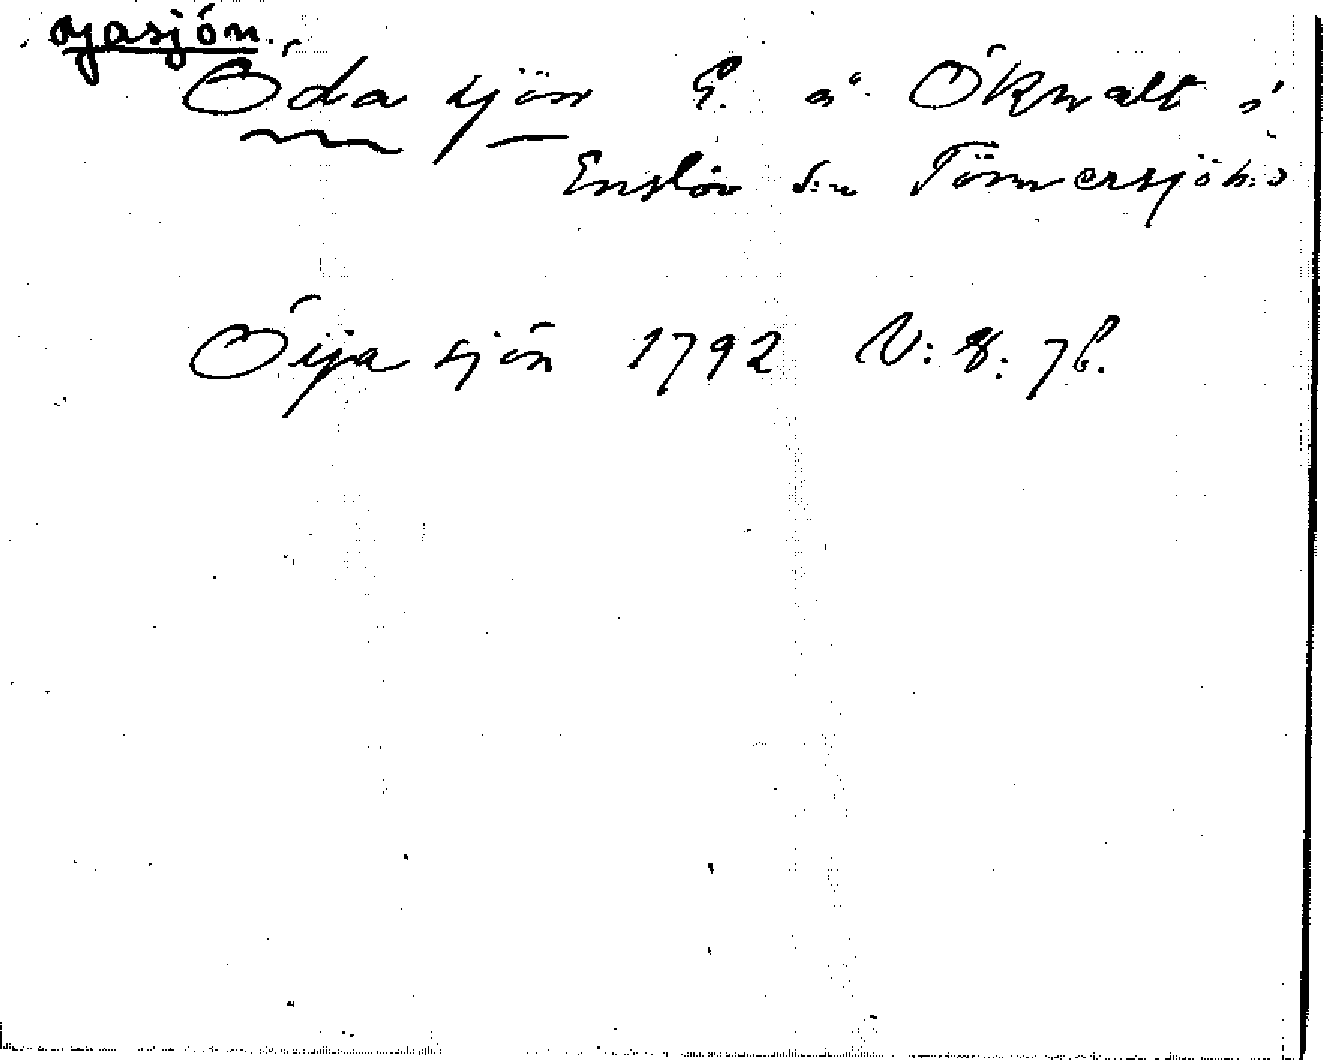 öjasjön.
Öda sjön E. å Öknalt i
Enslöv s:n Tönnersjö h:d
Öija sjön 1792 V: 8: 76.